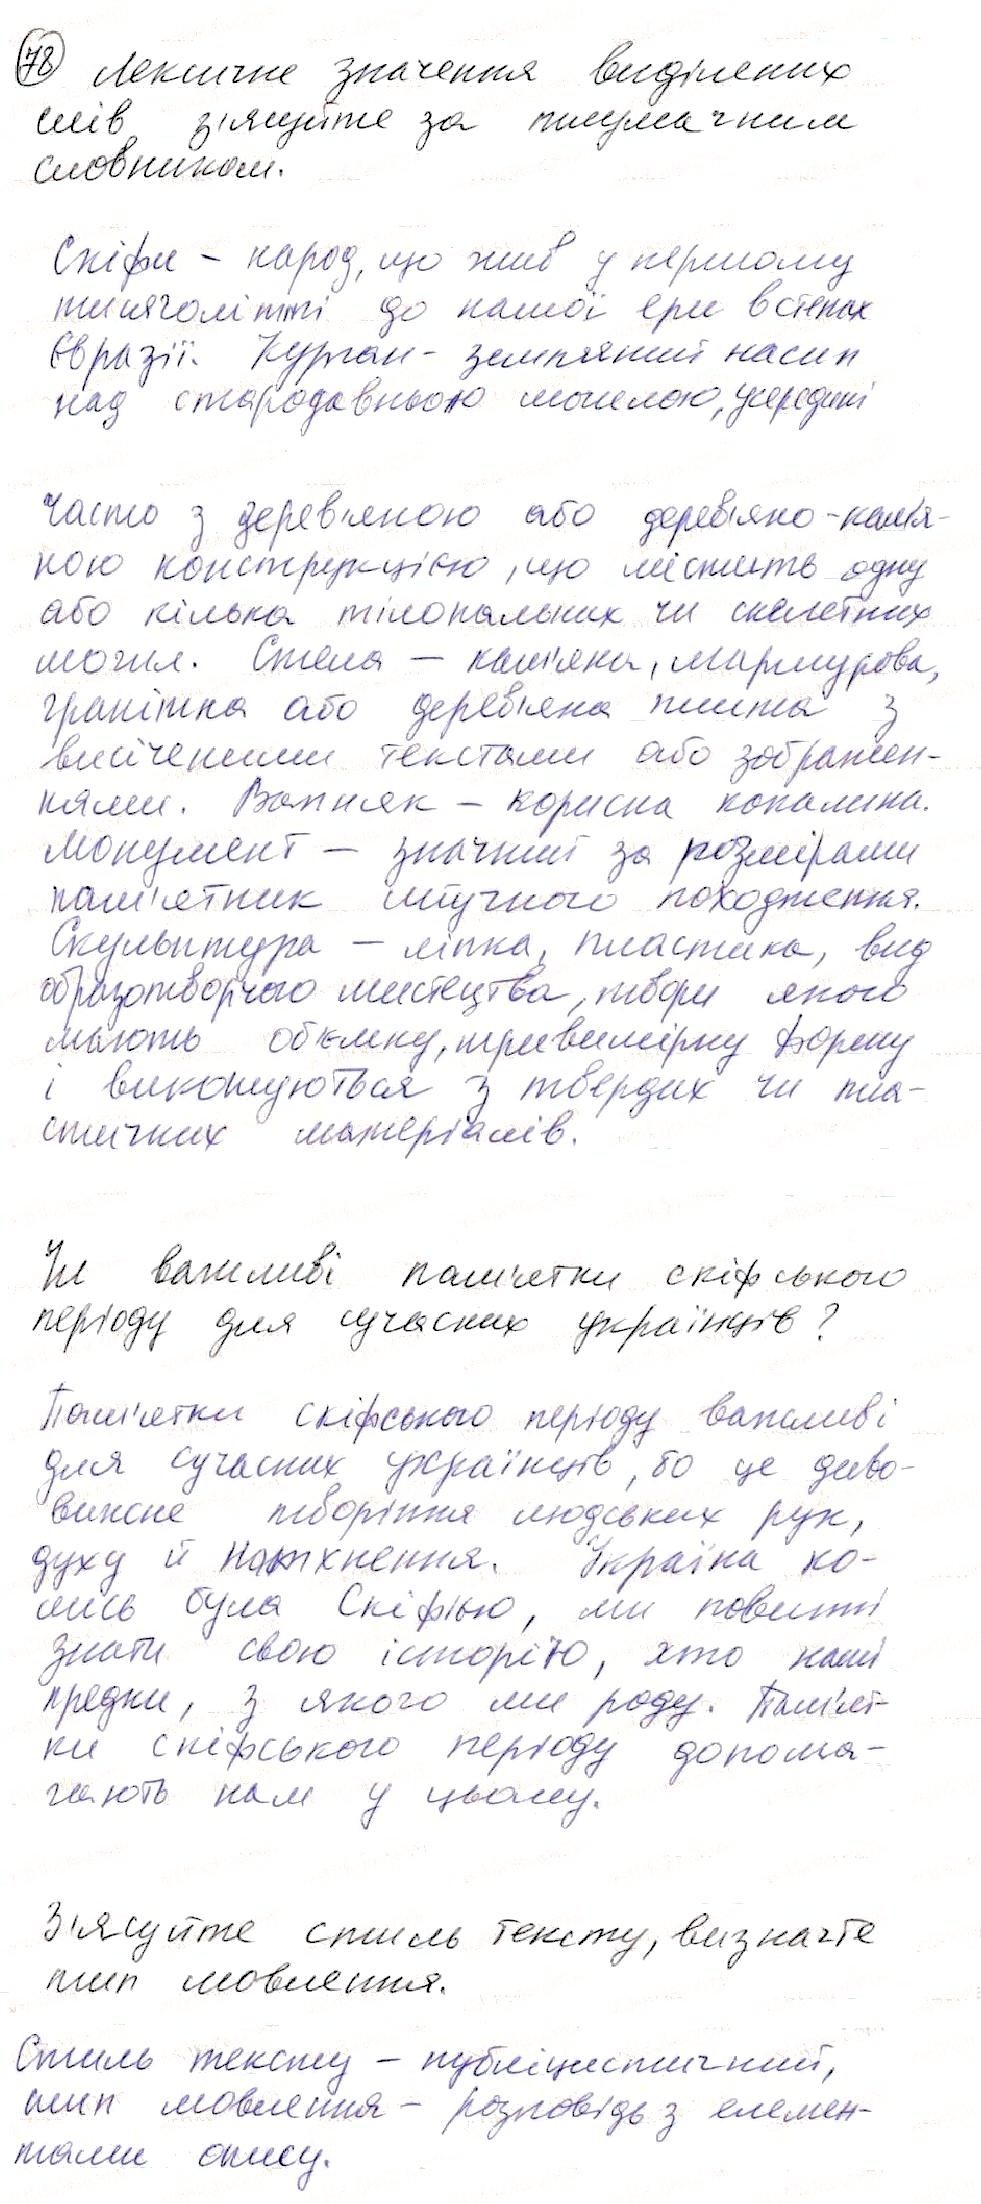 78 Лексичне значення виділених
слів з'ясуйте за тлумачним
словником.
Скіфи - народ, що жив у першому
тисячолітті до нашої ери в степах
Євразії. Курган - земляний насип
над стародавньою могилою, усередині
часто з дерев'яною або дерев'яно-кам'я-
ною конструкцією, що містить одну
або кілька тілопальних чи скелетних
могил. Стела - кам'яна, мармурова,
гранітна або дерев'яна плита з
висіченими текстами або зображен-
нями. Вапняк - корисна копалина.
Монумент - значний за розмірами
пам'ятник штучного походження.
Скульптура - ліпка, пластика, вид
образотворчого мистецтва, твори якого
мають об'ємну, тривимірну форму
і виконуються з твердих чи пла-
стичних матеріалів.
Чи важливі пам'ятки скіфського
періоду для сучасних українців?
Пам'ятки скіфського періоду важливі
для сучасних українців, бо це диво-
вижне творіння людських рук,
духу й натхнення. Україна ко-
лись була Скіфією, ми повинні
знати свою історію, хто наші
предки, з якого ми роду. Пам'ят-
ки скіфського періоду допома-
гають нам у цьому.
З'ясуйте стиль тексту, визначте
тип мовлення.
Стиль тексту - публіцистичний,
тип мовлення - розповідь з елемен-
тами опису.